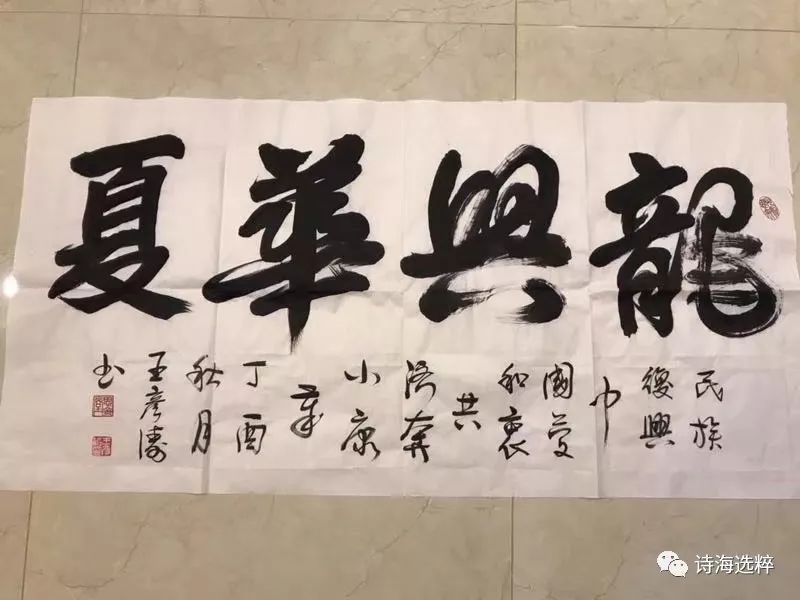 龍興華夏
民族
復興
中
國夢
和衷
共
濟奔
小康
丁酉
秋月
王彥濤
书
诗海选粹